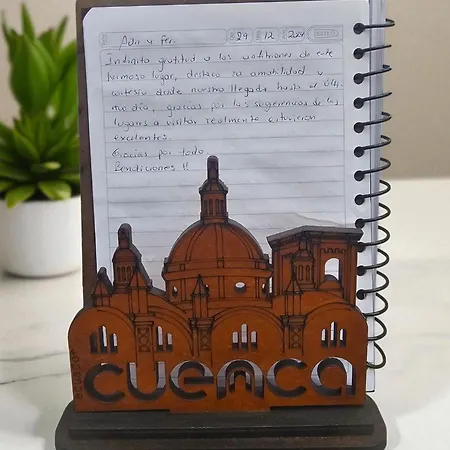 Adri y fer.
29 12 2024
Infinita gratitud a los anfitriones de este
hermoso lugar, destaco la amabilidad y
cortesía desde nuestra llegada hasta el últi
mo día, gracias por las sugerencias de los
lugares a visitar realmente estuvieron
excelentes.
Gracias por todo.
Bendiciones !!
cuenca